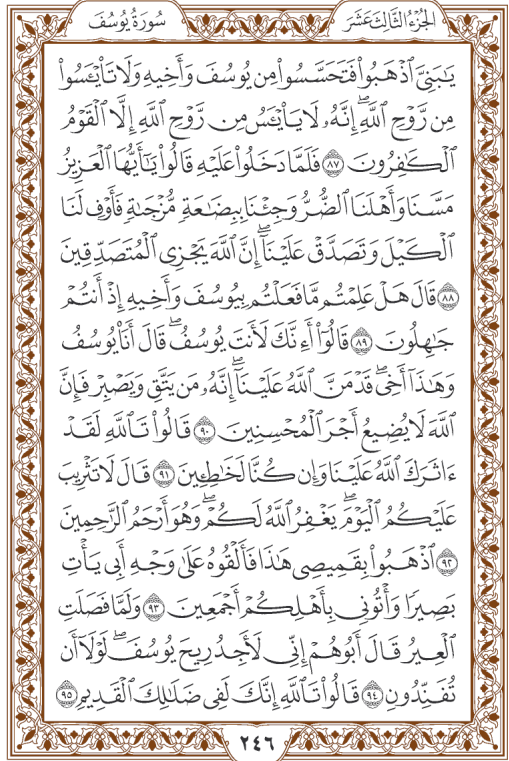 الجزء الثالث عشر
سورة يوسف
يَٰبَنِيَّ ٱذْهَبُوا۟ فَتَحَسَّسُوا۟ مِن يُوسُفَ وَأَخِيهِ وَلَا تَا۟يْـَٔسُوا۟
مِن رَّوْحِ ٱللَّهِ ۖ إِنَّهُۥ لَا يَا۟يْـَٔسُ مِن رَّوْحِ ٱللَّهِ إِلَّا ٱلْقَوْمُ
ٱلْكَٰفِرُونَ ٨٧ فَلَمَّا دَخَلُوا۟ عَلَيْهِ قَالُوا۟ يَٰٓأَيُّهَا ٱلْعَزِيزُ
مَسَّنَا وَأَهْلَنَا ٱلضُّرُّ وَجِئْنَا بِبِضَٰعَةٍ مُّزْجَىٰةٍ فَأَوْفِ لَنَا
ٱلْكَيْلَ وَتَصَدَّقْ عَلَيْنَآ ۖ إِنَّ ٱللَّهَ يَجْزِى ٱلْمُتَصَدِّقِينَ
٨٨ قَالَ هَلْ عَلِمْتُم مَّا فَعَلْتُم بِيُوسُفَ وَأَخِيهِ إِذْ أَنتُمْ
جَٰهِلُونَ ٨٩ قَالُوٓا۟ أَءِنَّكَ لَأَنتَ يُوسُفُ ۖ قَالَ أَنَا۠ يُوسُفُ
وَهَٰذَآ أَخِى ۖ قَدْ مَنَّ ٱللَّهُ عَلَيْنَآ ۖ إِنَّهُۥ مَن يَتَّقِ وَيَصْبِرْ فَإِنَّ
ٱللَّهَ لَا يُضِيعُ أَجْرَ ٱلْمُحْسِنِينَ ٩٠ قَالُوا۟ تَٱللَّهِ لَقَدْ
ءَاثَرَكَ ٱللَّهُ عَلَيْنَا وَإِن كُنَّا لَخَٰطِـِٔينَ ٩١ قَالَ لَا تَثْرِيبَ
عَلَيْكُمُ ٱلْيَوْمَ ۖ يَغْفِرُ ٱللَّهُ لَكُمْ ۖ وَهُوَ أَرْحَمُ ٱلرَّٰحِمِينَ
٩٢ ٱذْهَبُوا۟ بِقَمِيصِى هَٰذَا فَأَلْقُوهُ عَلَىٰ وَجْهِ أَبِى يَأْتِ
بَصِيرًا وَأْتُونِى بِأَهْلِكُمْ أَجْمَعِينَ ٩٣ وَلَمَّا فَصَلَتِ
ٱلْعِيرُ قَالَ أَبُوهُمْ إِنِّى لَأَجِدُ رِيحَ يُوسُفَ ۖ لَوْلَآ أَن
تُفَنِّدُونِ ٩٤ قَالُوا۟ تَٱللَّهِ إِنَّكَ لَفِى ضَلَٰلِكَ ٱلْقَدِيمِ ٩٥
٢٤٦